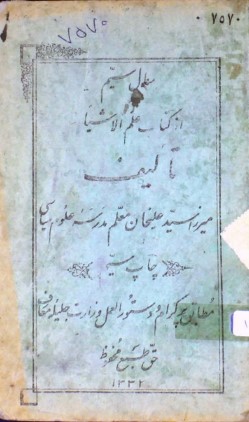 ۰۷۵۷۰
۷۵۷۰
سئوال سیم
از کتاب علم الاشیاء
تألیف
میرزا سید علیخان معلم مدرسه علوم سیاسی
چاپ سیم
مطابق پروگرام و دستورالعمل وزارت جلیله معارف
حق طبع محفوظ
۱۳۳۲